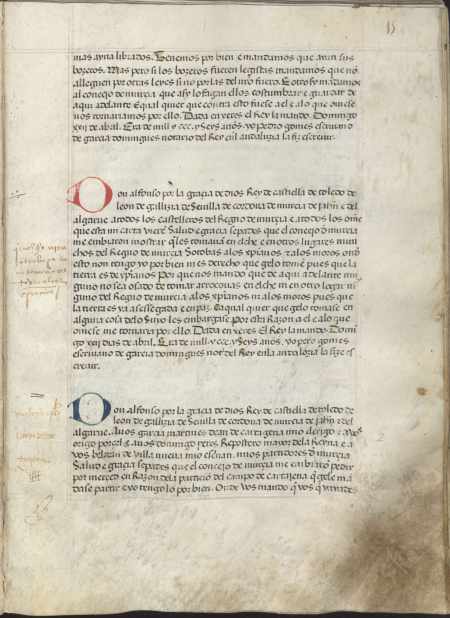 mas ayna librados. Tenemos por bien e mandamos que ayan sus
bozeros. Mas pero si los bozeros fueren legistas mandamos que nō
alleguen por otras leyes si no por las del nrō fuero. E otrosy mādamos
al conçejo de murcia que asy lo fagan ellos costumbrar e guardar de
aqui adelante e qual quier que contra esto fuese a el e a lo que ouiese
nos tornariamos por ello. Dada en xeres el Rey la mando. Domingo
xxj de abril. Era de mill e ccc. y seys años. yo pedro gomes escriuano
de garcia domingues notario del Rey en el andalizia la fiz escreuir.
Don alfonso por la gracia de dios Rey de castiella de toledo de
leon de gallizia de Seuilla de cordoua de murcia de jahn e del
algarue. A todos los castelleros del Regno de murcia e a todos los om̄e
que esta mi carta vierē Salud e gracia sepades que el conçejo d murcia
me embiaron mostrar q̄ les tomauā en elche e en otros lugares mu
chos del Regno de murcia Rotobas a los xp̄ianos e a los moros onde
esto non tengo yo por bien ni es derecho que gelo tomē pues que la
tierra es de xp̄ianos Por que nos mando que de aqui adelante nin
guno no sea osado de tomar arrotouas en elche ni en otro logar ni
guno del Regno de murcia a los xp̄ianos ni a los moros pues que
la tierra es ya assessegada e en paz. Ca qual quier que gelo tomase en
alguna cosa delo suyo les embargase Por esta Razon a el e a lo que
ouiese me tornaria por ello. Dada en xeres El Rey la mando. Domi
go xxj dias de abril. Era de mill y ccc. y seys anos. yo pero gomes
escriuano de garcia domingues not del Rey en la andalozia la fize es
creuir.
Don alfonso por la gracia de dios Rey de castiella de toledo de
leon de gallizia de Seuilla de cordoua de murcia de jahn e del
algarue. A uos garcia martines dean de cartagena mio clerigo e a uos
orrigo porçel e a uos domingo peres Repostero mayor dela Reyna e a
vos beltran de villa nueua mio escriuan. mios partidores d murcia
Salud e gracia sepades que el conçejo de murcia me embiarō pedir
por merced en Razon dela particiō del campo de cartajena q̄ gela mā
dase partir e yo tengo lo por bien. Onde vos mando q̄ vos q̄ veades